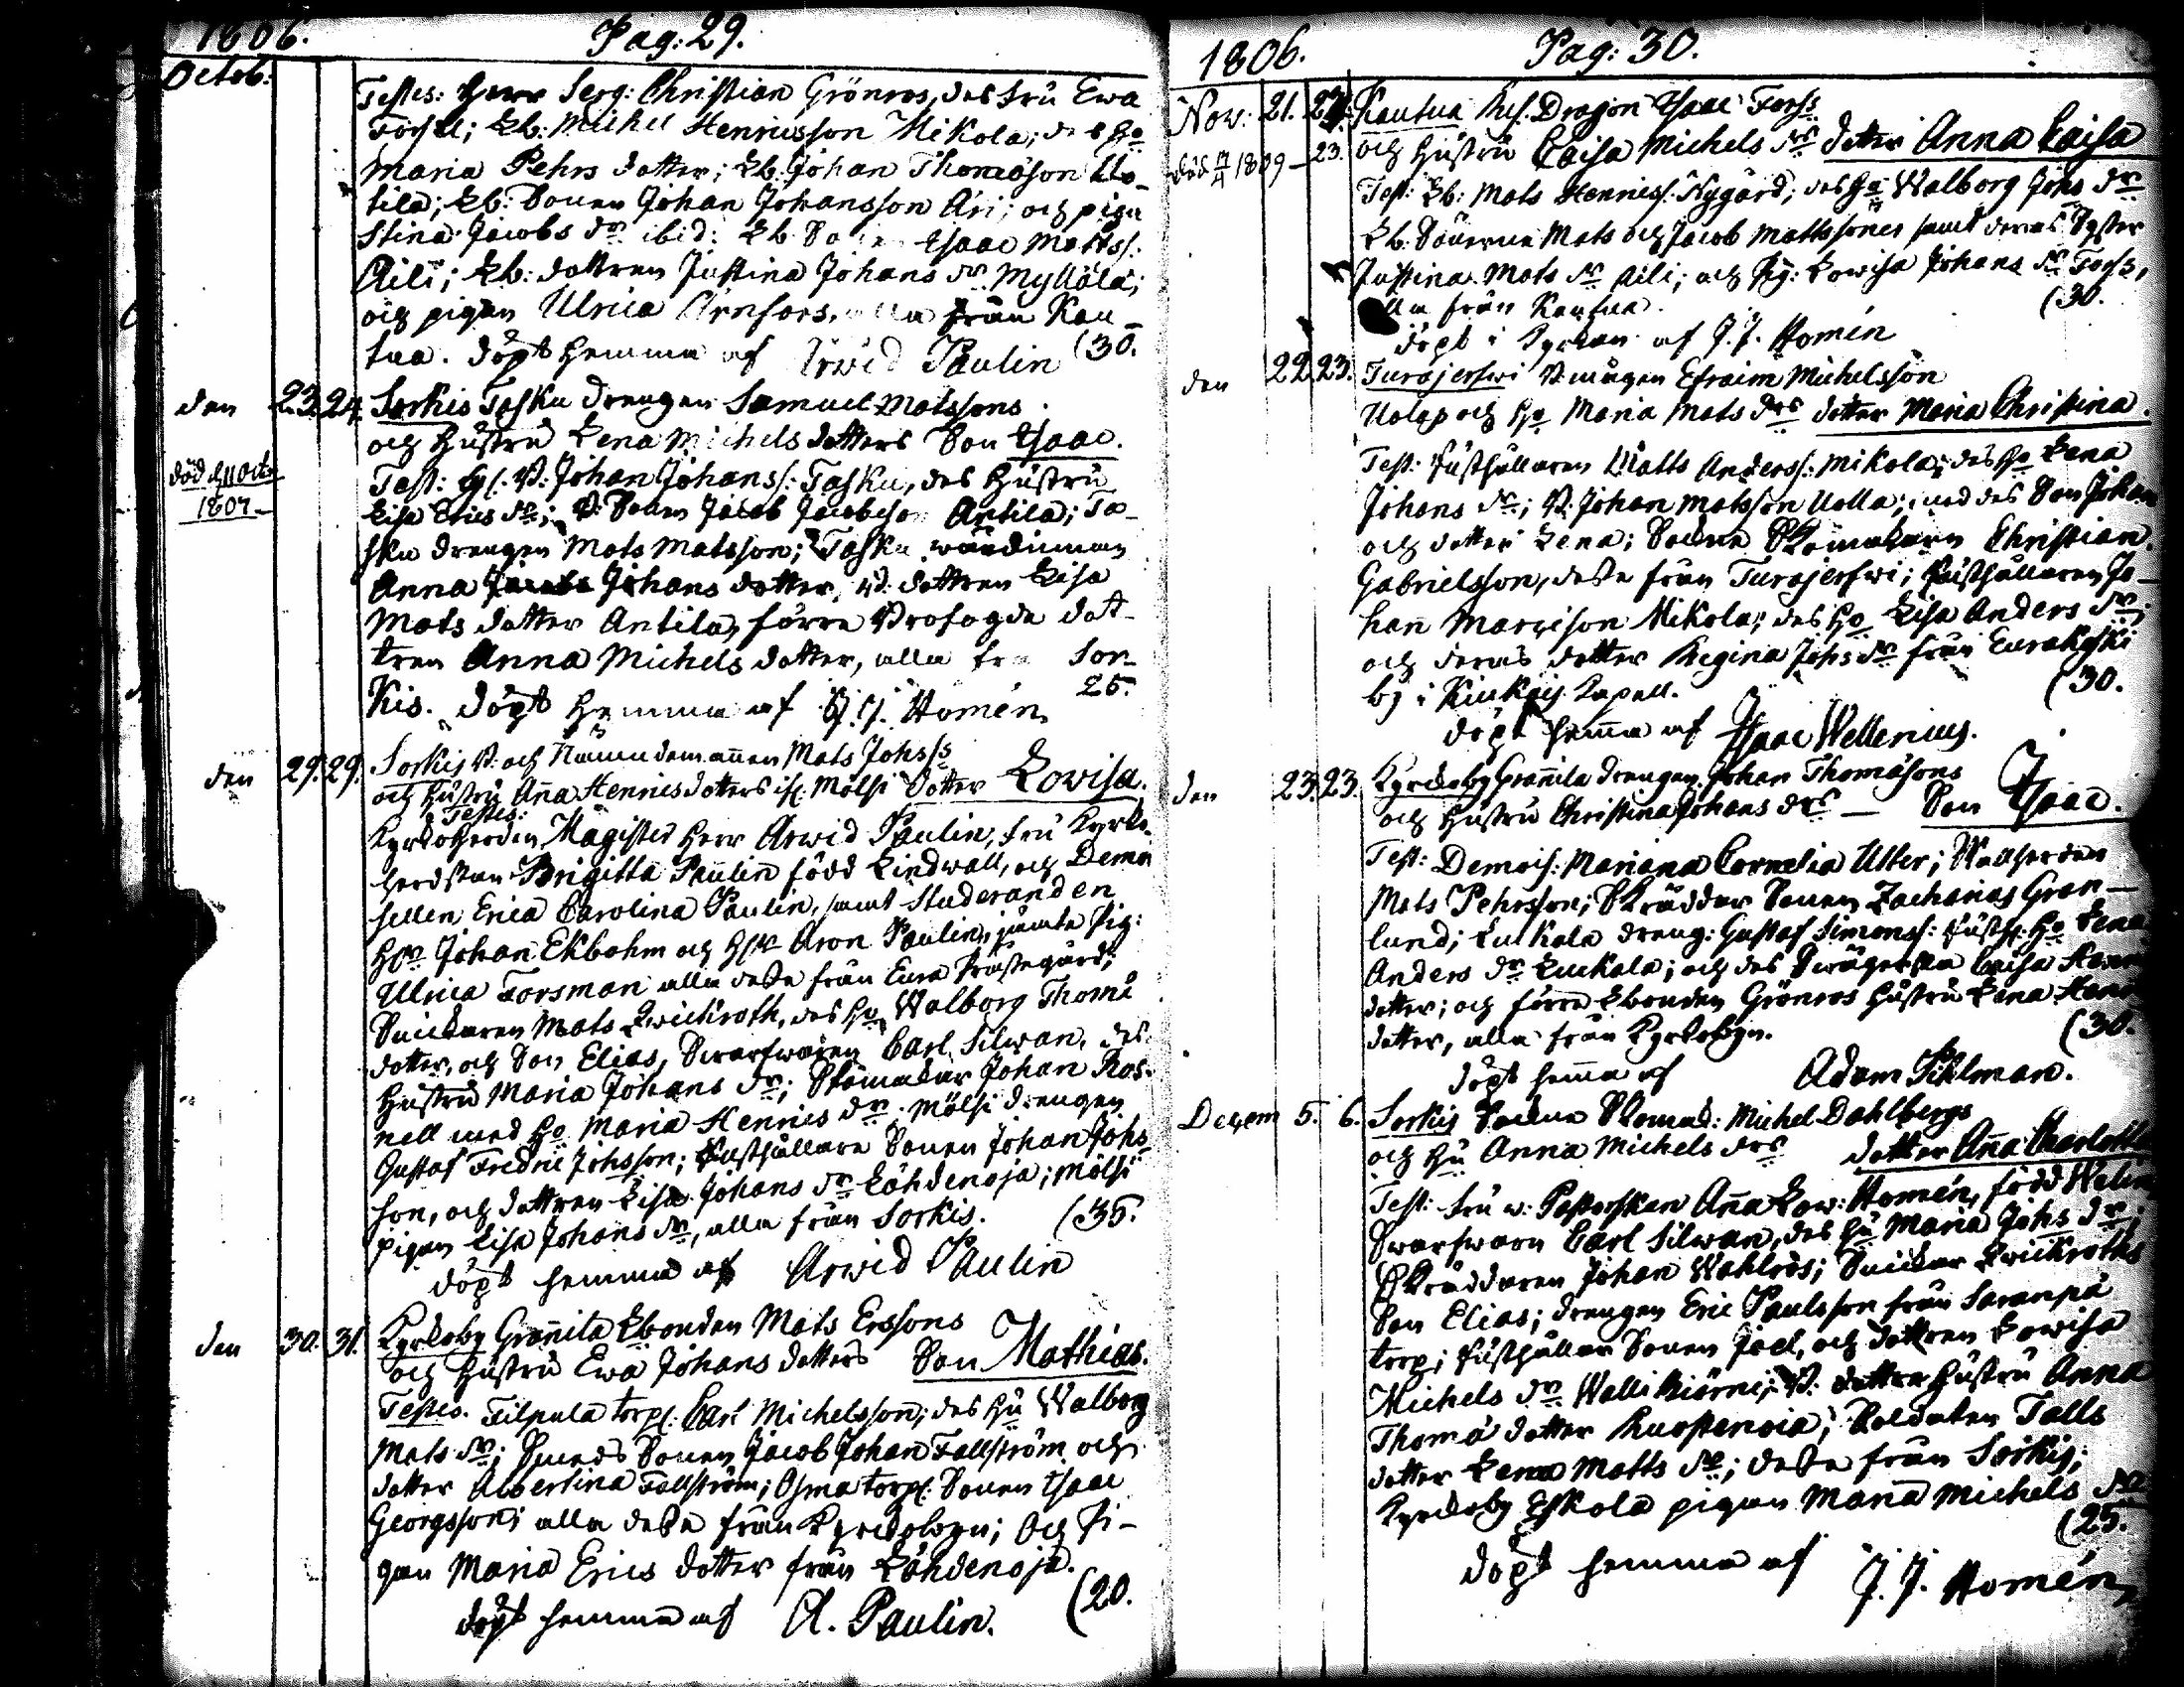 1806. Pag: 29.
Octob:
Testes: Herr Serg: Christian Grönros, des fru Ewa
Forsel; Lb: Michel Henricsson Mikola; des Ho
Maria Pehrs dotter; Lb: Johan Thomåson
tila; Lb: Sonen Johan Johansson Ari; och pigan
Stina Jacobs dr ibid: Lb: Sonen Isaac Matss:
Aili; Lb: dottren Justina Johans dr Myllölä;
och pigan Ulrica Arnfors, alla från Kau-
tua. döpt hemma af Arwid Paulin (30.
den 23. 24. Sorkis Tasku drengen Samuel Matssons
och Hustru Lena Michels dotters Son Isaac.
död d 11 Octo 1807
Test: Johan Johanss: Tasku, des Hustru
Lisa Erics dr; Sonen Jacob Jacobsson Antila; Ta-
sku drengen Mats Matsson; Tasku wärdinnan
Anna Johans dotter, dottren Lisa
Mats dotter Antila, förre Profogde dot-
tren Anna Michels dotter, alla fr Sor-
kis. döpt hemma af J. J. Homén 25.
den 29. 29. Sorkis och Nämndemannen Mats Johss
och Hustru Anna Hennicsdotters Mölsi dotter Lowisa.
Testes:
Kyrkoherden Magister Herr Arwid Paulin, fru Kyrko-
herdskan Brigitta Paulin född Lindwall, och Demoi
sellen Erica Carolina Paulin, samt Studeranden
Johan Ekbohm och Aron Paulin, jämte Pig:
Ulrica Forsman alla desse från Eura Prästegård;
Snickaren Mats Qwickroth, des Ho Walborg Thomå
dotter, och Son Elias, Swarfwaren Carl Silwan, des
Hustru Maria Johans dr; Skomakar Johan Ros-
nell med Ho Maria Hennics dr; Mölsi drengen
Gustaf Fredric Johsson; Rusthållare Sonen Johan Johs
son, och dottren Lisa Johans dr Löhdenoja; Mölsi
pigan Lisa Johans dr, alla från Sorkis. (35.
döpt hemma af Arwid Paulin
den 30. 31. Kyrkoby Grannila Lbonden Mats Erssons
och Hustru Ewa Johans dotters Son Mathias.
Testes. Filpula torp: Carl Michelsson, des Hu Walborg
Mats dr; Smeds Sonen Jacob Johan Fallström och
dotter Albertina Fallström; Osma torp: Sonen Isaac
Georgsson; alla desse från Kyrkobyn; Och Pi-
gan Maria Erics dotter från Löhdenoja.
döpt hemma af A. Paulin. (20.
1806. Pag: 30.
Nov: 21. 23. Kautua Dragon Isaac Forss
och Hustru Caisa Michels drs dotter Anna Caisa
död 1809 23.
Test: Lb: Mats Hennicss: Nygård; des Ho Walborg Johs dr
Lb: Sönerna Mats och Jacob Mattssöner samt deras Syster
Justina Mats dr Aili; och Pig: Lowisa Johans dr Forss,
alla från Kautua. (30.
döpt i Kyrkan af J. J. Homén
den 22. 23. Turajerfwi Efraim Michelsson
Uolap och Ho Maria Mats drs dotter Maria Christina.
Test: Rusthållaren Matts Anderss: Mikola; des Ho Lena
Johans dr; Johan Matsson Uolla; med des Son Johan
och dotter Lena; Sockne Skomakaren Christian
Gabrielsson, desse från Turajerfwi; Rusthållaren Jo-
han Marcison Mikola; des Ho Lisa Anders dr;
och deras dotter Regina Johs dr från Eurakoski
by i Kiukais Kapell. (30.
döpt hemma af Isaac Wellenius.
den 23. 23. Kyrkoby Grannila drengen Johan Thomåsons
och Hustru Christina Johans drs Son Isaac.
Test: Demois: Mariana Cornelia Utter; Wallherden
Mats Pehrsson; Skräddar Sonen Zacharias Gran-
lund; Luckala dreng: Gustaf Simonss: Rusth: Ho Lena
Anders dr Luckala; och des Swägerska Caisa
dotter; och förre Lbonden Grönros Hustru Lena
dotter, alla från Kyrkobyn. (30.
döpt hemma af Adam Pihlman.
Decem 5. 6. Sorkis Sockne Skomak: Michel Dahlbergs
och Hu Anna Michels drs dotter Anna Charlotta
Test: Fru w: Pastorskan Anna Low: Homén, född Welin
Swarfwarn Carl Silwan, des Hu Maria Johs dr;
Skräddaren Johan Wahlros; Snickar Qwickroths
Son Elias; drengen Eric Paulsson från Saranpä
torp; Rusthållar Sonen Joel, och dottren Lowisa
Michels dr Wallibiörni; dotter Hustru Anna
Thomå dotter Ruostenoia; Soldaten Talls
dotter Lena Matts dr; desse från Sorkis;
Kyrkoby Eskola pigan Maria Michels dr
(25.
döpt hemma af J. J. Homén